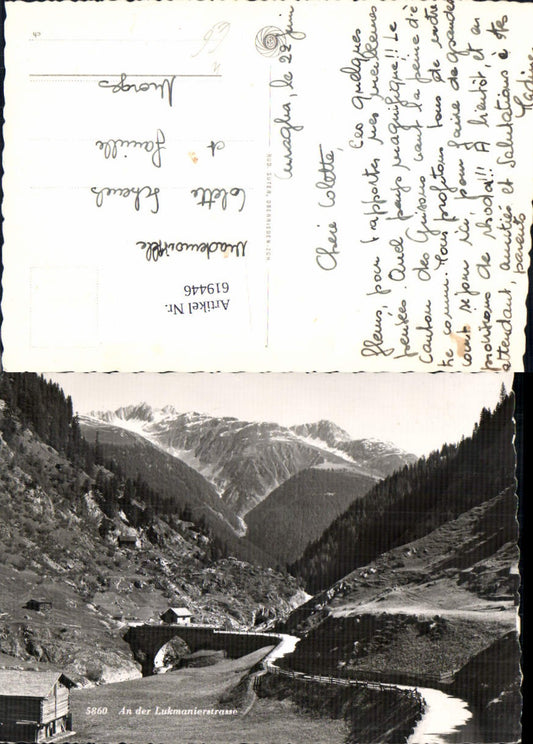 Curaglia, le 22 juin
Chère Colette,
Ces quelques
fleurs, pour t'apporter mes meilleures
pensées. Quel pays magnifique!! Le
Canton des Grisons vaut la peine d'ê-
tre connu. Nous profitons tous de notre
court séjour ici, pour faire de grandes
provisions de rhodos!! A bientôt, et en
attendant, amitiés et salutations à tes
parents
Mademoiselle
Colette
et famille
Morges
RUD. SUTER, OBERRIEDEN-ZCH
Artikel Nr.
619446
5860 An der Lukmanierstrasse